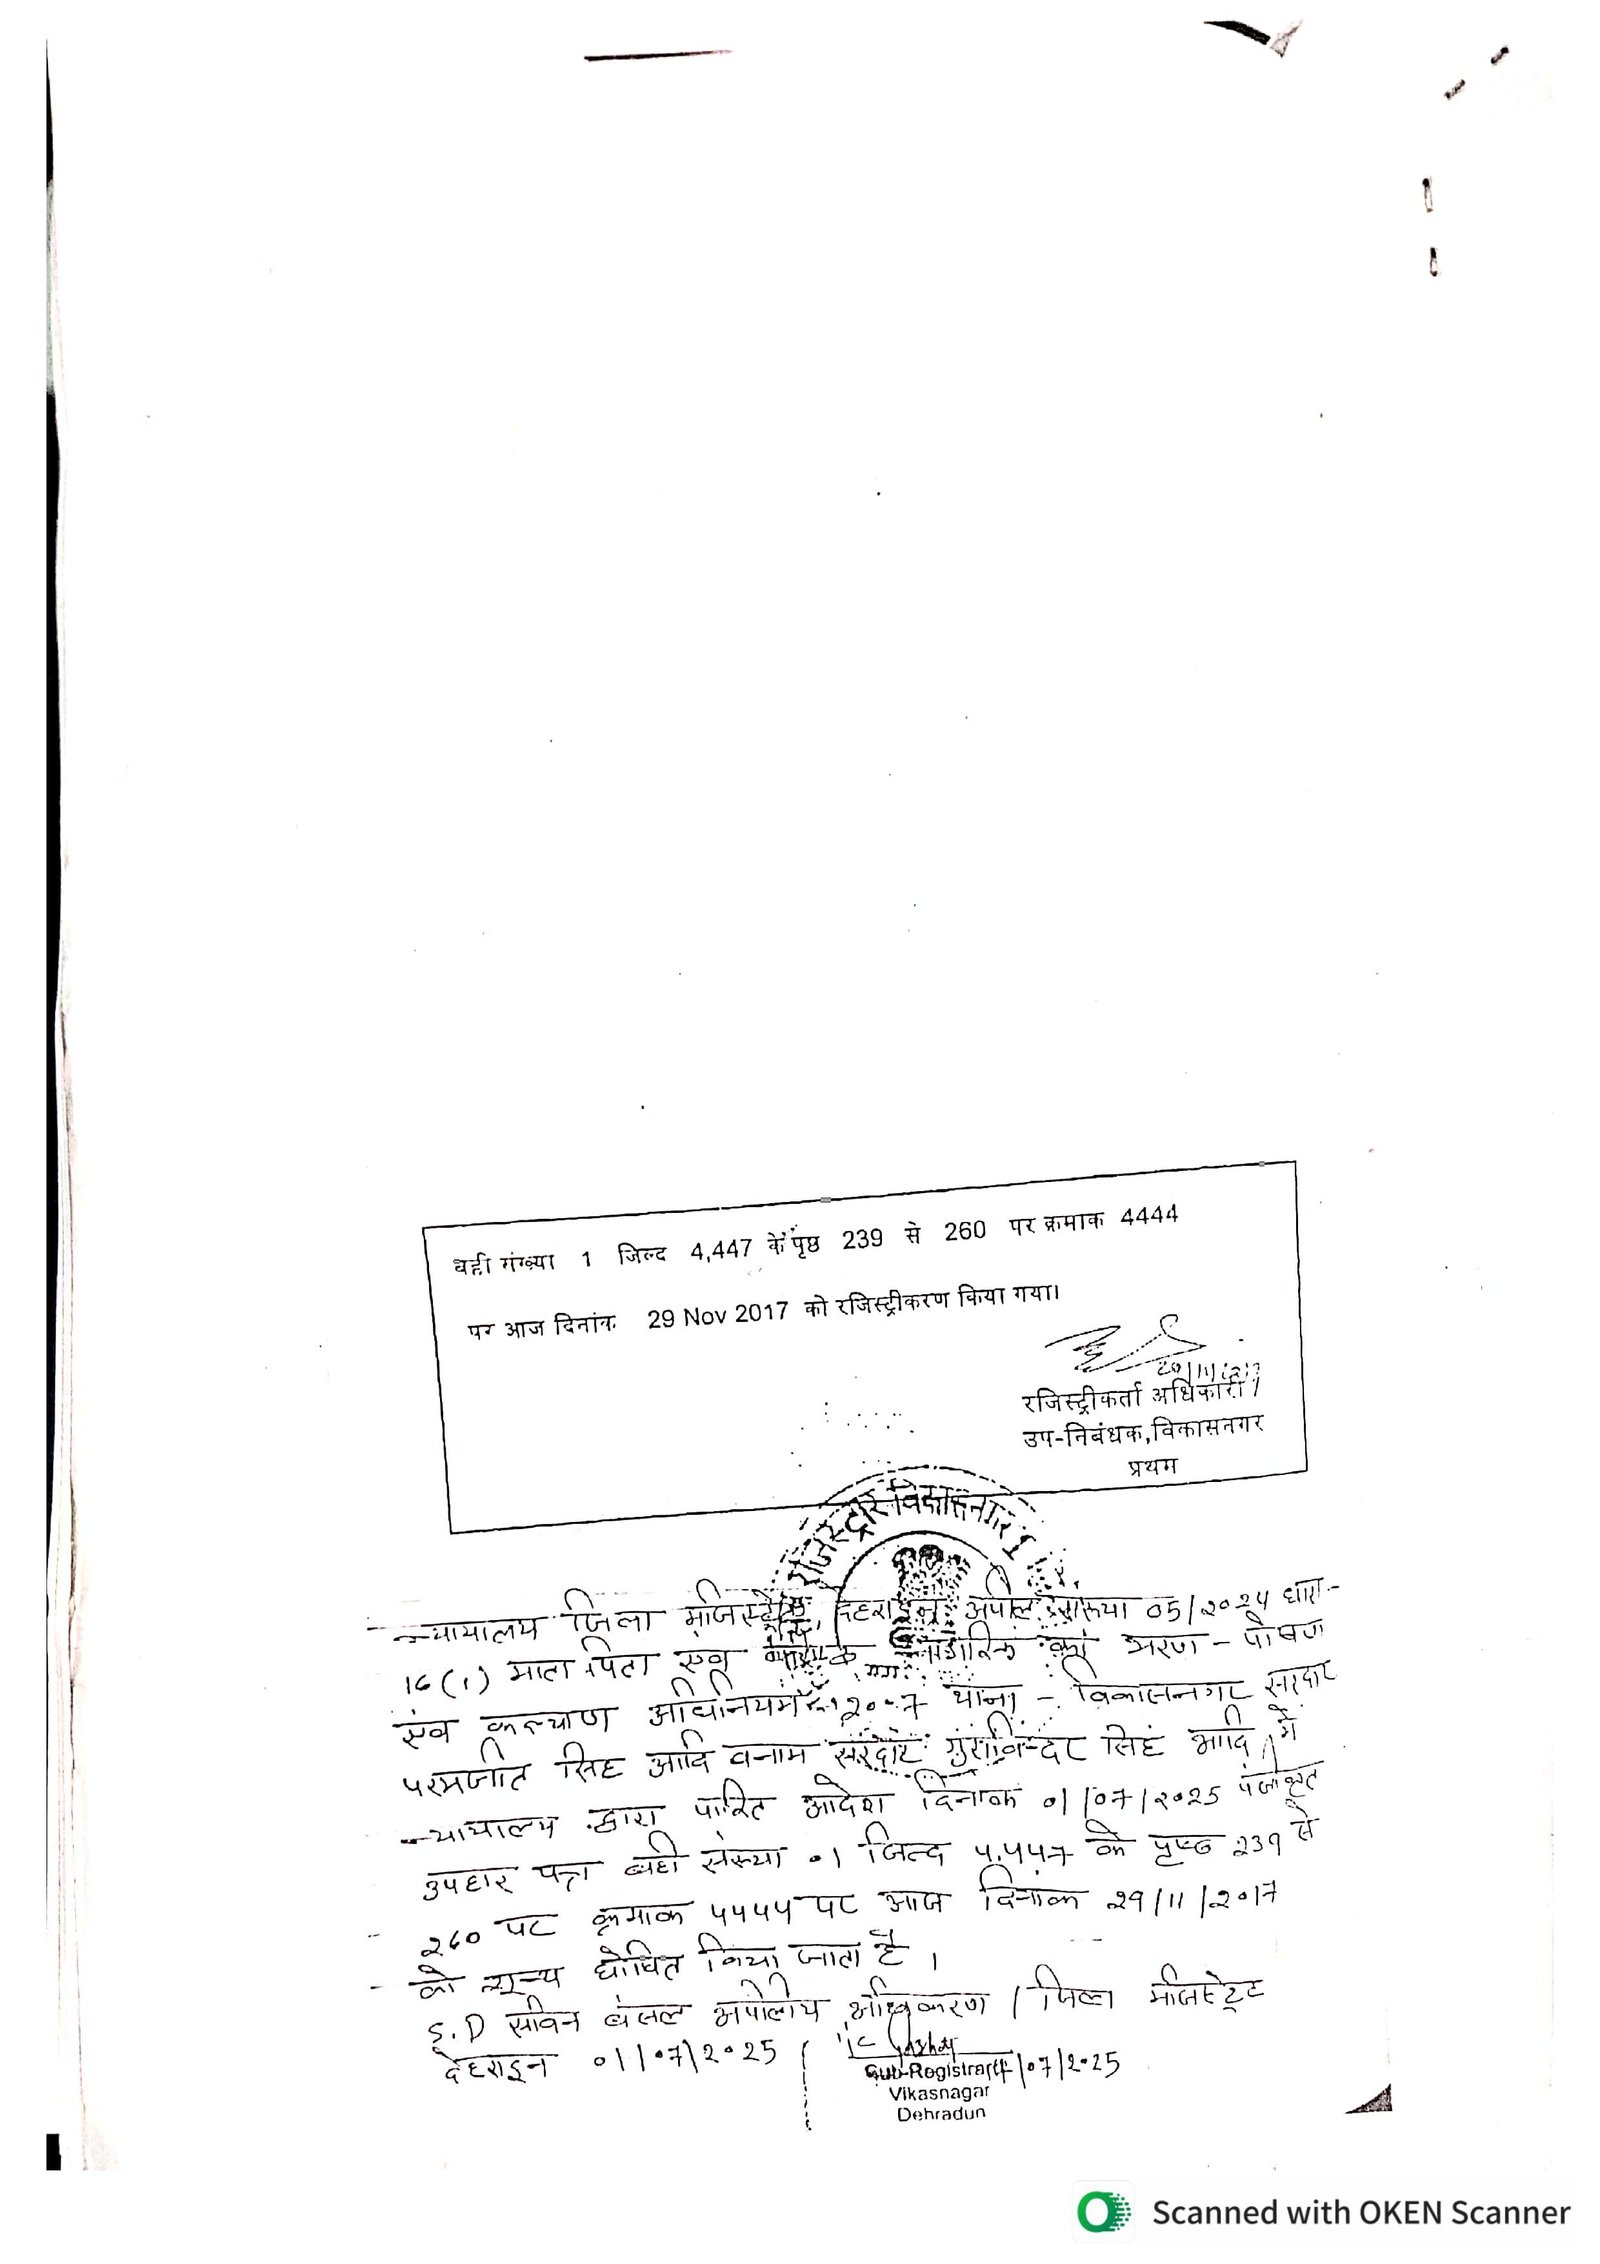 बही संख्या 1 जिल्द 4,447 के पृष्ठ 239 से 260 पर क्रमांक 4444
पर आज दिनांक 29 Nov 2017 को रजिस्ट्रीकरण किया गया।
रजिस्ट्रीकर्ता अधिकारी /
उप-निबंधक,विकासनगर
प्रथम
न्यायालय जिला मजिस्ट्रेट, देहरादून अपील संख्या 05/2024 धारा-
16(1) माता पिता एंव नागरिक का भरण-पोषण
एंव कल्याण अधिनियम 2007 थाना - विकासनगर सरदार
परमजीत सिंह आदि बनाम सरदार गुरविन्दर सिंह आदि में
न्यायालय द्वारा पारित आदेश दिनांक 01/07/2025 पंजीकृत
उपहार पत्र बही संख्या 01 जिल्द 4,447 के पृष्ठ 239 से
260 पर क्रमांक 4444 पर आज दिनांक 29/11/2017
को शून्य घोषित किया जाता है ।
S.D सविन बंसल अपीलीय अधिकरण / जिला मजिस्ट्रेट
देहरादून 01/07/2025
Sub-Registrar /07/2025
Vikasnagar
Dehradun
Scanned with OKEN Scanner